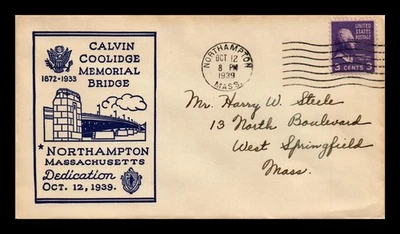 CALVIN
COOLIDGE
1872 • 1933
MEMORIAL
BRIDGE
* NORTHAMPTON
MASSACHUSETTS
Dedication
OCT. 12, 1939.
NORTHAMPTON
OCT 12
8 PM
1939
MASS.
UNITED STATES
POSTAGE
3 CENTS 3
Mr. Harry W. Steele
13 North Boulevard
West Springfield
Mass.